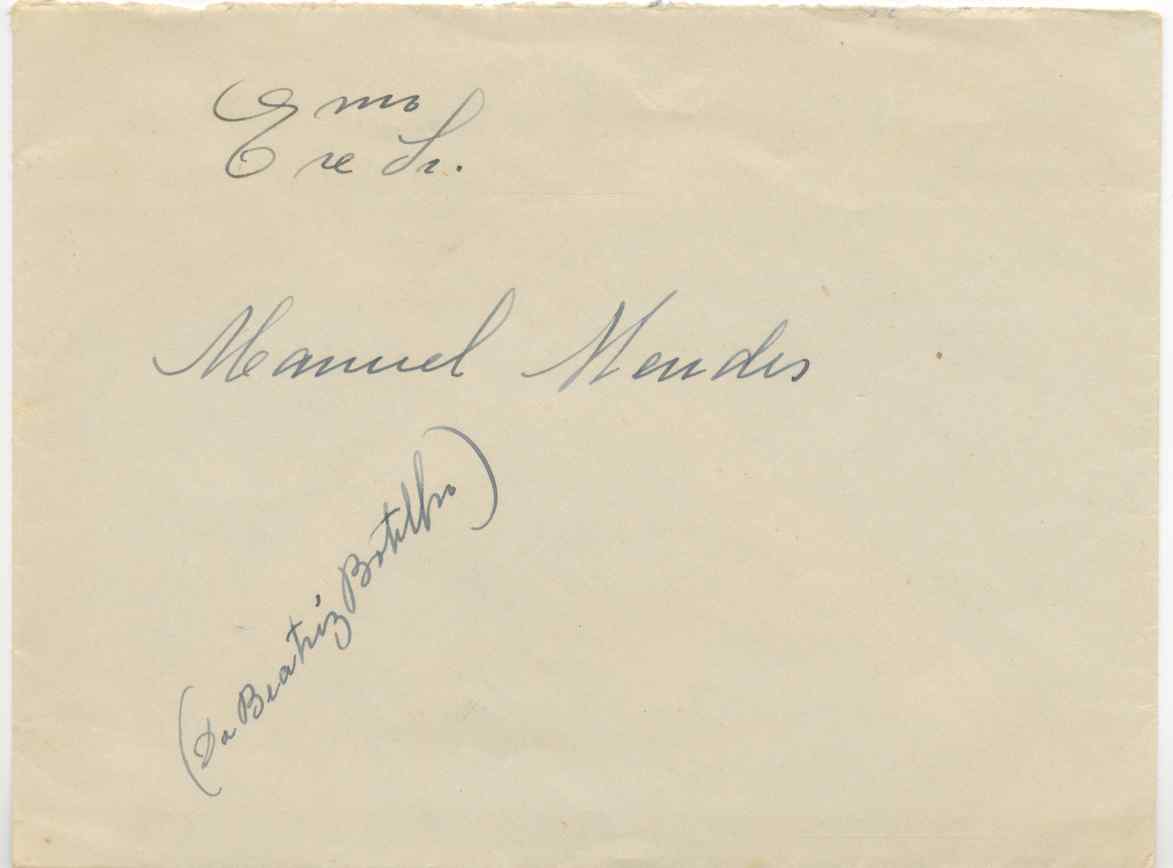 Exmo
Sr.
Manuel Mendes
(Da Beatriz Botelho)